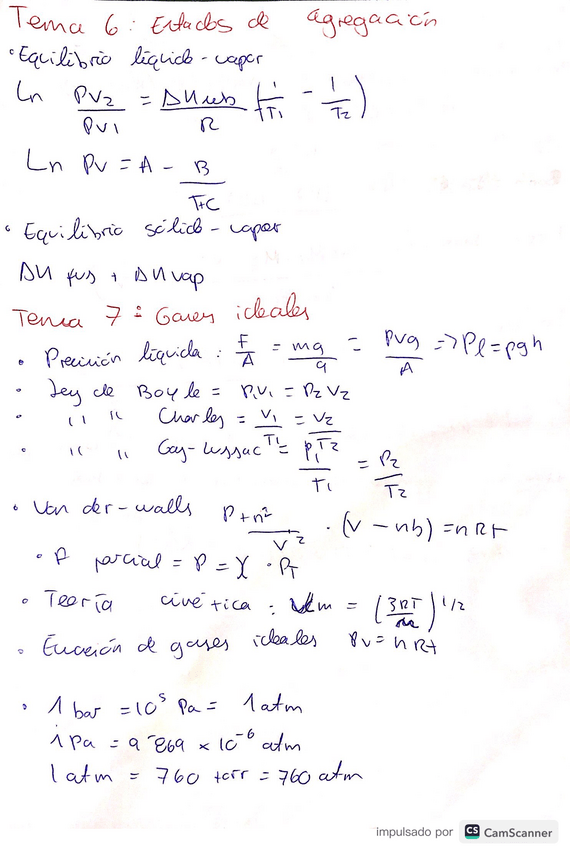 Tema 6: Estados de agregación
• Equilibrio líquido-vapor
Ln PV2/PV1 = ΔHeb/R (1/T1 - 1/T2)
Ln Pv = A - B/T+C
• Equilibrio sólido-vapor
ΔH fus + ΔH vap
Tema 7: Gases ideales
• Presión líquida: F/A = mg/a = ρVg/A => Pl = ρgh
• Ley de Boyle = P1V1 = P2V2
• " " Charles = V1/T1 = V2/T2
• " " Gay-Lussac = P1/T1 = P2/T2
• Van der-walls P+n²/V² · (V - nb) = nRt
• P parcial = P = χ · PT
• Teoría cinética: Vm = (3RT/m)^1/2
• Ecuación de gases ideales Pv = nRt
• 1 bar = 10⁵ Pa = 1 atm
1 Pa = 9'869 x 10⁻⁶ atm
1 atm = 760 torr = 760 atm
impulsado por CS CamScanner